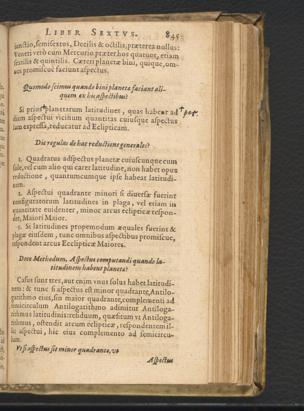 LIBER SEXTVS. 845
iunctio, semisextus, Decilis & octilis, præterea nullus:
Veneris verò cum Mercurio præter hos quatuor, etiam
sextilis & quintilis. Cæteri planetæ bini, quique, om-
nes promiscuè faciunt aspectus.
Quomodo scimus quando bini planetæ faciant ali-
quem ex his aspectibus?
Si prius planetarum latitudines, quas habent ad
dum aspectui vicinum quantitas cuiusque aspectus
iam expressa, reducatur ad Eclipticam.
Dic regulas de hac reductione generales?
1. Quadratus adspectus planetæ cuiuscunque cum
sole, vel cum alio qui caret latitudine, non habet opus
reductione, quantumcunque ipse habeat latitudi-
nem.
2. Aspectui quadrante minori si diversæ fuerint
configuratorum latitudines in plaga, vel etiam in
quantitate evidenter, minor arcus eclipticæ respon-
det, Maiori Maior.
3. Si latitudines propemodum æquales fuerint &
plagæ eiusdem, tunc omnibus aspectibus promiscue,
respondent arcus Eclipticæ Maiores.
Doce Methodum, Aspectus computandi quando la-
titudinem habent planetæ?
Casus sunt tres, aut enim vnus solus habet latitudi-
nem: & tunc si aspectus est minor quadrante, Antilo-
garithmo eius, sin maior quadrante, complementi ad
semicirculum Antilogarithmo adimitur Antiloga-
rithmus latitudinis: residuum, quæsitum vt Antiloga-
rithmus, ostendit arcum eclipticæ, respondentem il-
lic aspectui, hic eius complemento ad semicircu-
lum.
Vt si aspectus sit minor quadrante, vt
Aspectus